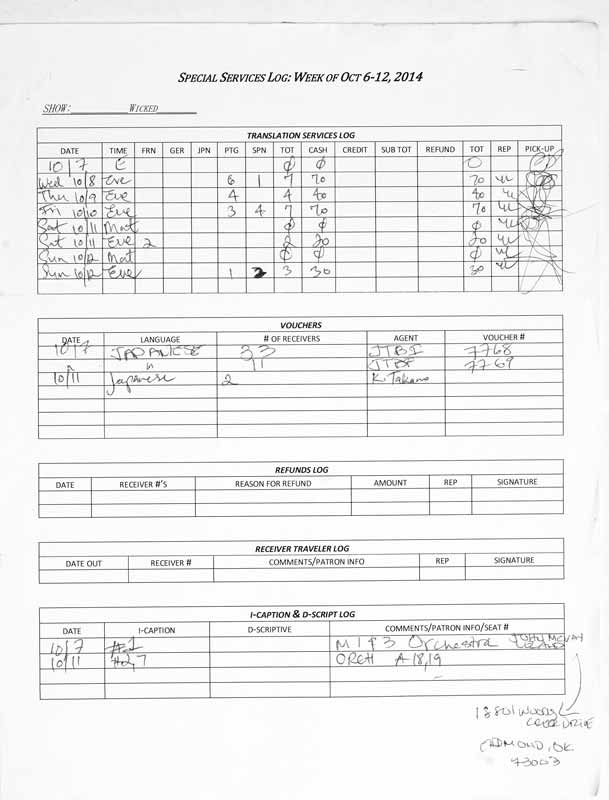 SPECIAL SERVICES LOG: WEEK OF OCT 6-12, 2014
SHOW: WICKED
TRANSLATION SERVICES LOG
DATE TIME FRN GER JPN PTG SPN TOT CASH CREDIT SUB TOT REFUND TOT REP PICK-UP
10/7 E ∅ ∅ O
Wed 10/8 Eve 6 1 7 70 70
Thu 10/9 Eve 4 4 40 40
Fri 10/10 Eve 3 4 7 70 70
Sat 10/11 Mat ∅ ∅ ∅
Sat 10/11 Eve 2 2 20 20
Sun 10/12 Mat ∅ ∅ ∅
Sun 10/12 Eve 1 2 3 30 30
VOUCHERS
DATE LANGUAGE # OF RECEIVERS AGENT VOUCHER #
10/7 JAPANESE 33 JTBI 7768
" " JTBI 7769
10/11 Japanese 2 K. Takano
REFUNDS LOG
DATE RECEIVER #'S REASON FOR REFUND AMOUNT REP SIGNATURE
RECEIVER TRAVELER LOG
DATE OUT RECEIVER # COMMENTS/PATRON INFO REP SIGNATURE
I-CAPTION & D-SCRIPT LOG
DATE I-CAPTION D-SCRIPTIVE COMMENTS/PATRON INFO/SEAT #
10/7 #1 M 1 & 3 Orchestra JOHN MCVAY
10/11 #27 ORCH A 18,19
EDMOND, OK
73003